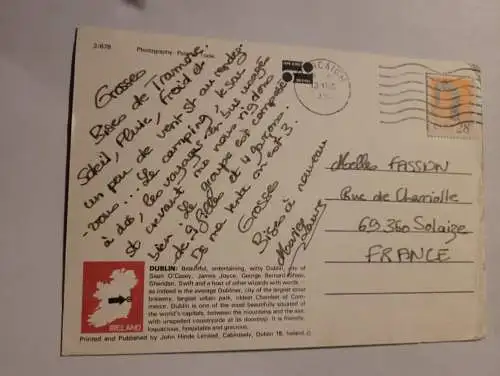 2/678
Photography
Grosses
Bises de Tramore.
Soleil, Pluie, froid et
un peu de vent st au rendez-
-vous... Le camping, le sac
à dos, les voyages en bus usagés
st crevant ms nous rigolons
bien. Le groupe est composé
de 9 filles et 4 garçons.
Ds ma tente on est 3.
Grosses
Bises à nouveau
28
Melles FASSION
Rue de Charriolle
69360 Solaize
FRANCE
IRELAND
DUBLIN: Beautiful, entertaining, witty Dublin, city of
Sean O'Casey, James Joyce, George Bernard Shaw,
Sheridan, Swift and a host of other wizards with words
as indeed is the average Dubliner, city of the largest stout
brewery, largest urban park, oldest Chamber of Com-
merce. Dublin is one of the most beautifully situated of
the world's capitals, between the mountains and the sea,
with unspoiled countryside at its doorstep. It is friendly,
loquacious, hospitable and gracious.
Printed and Published by John Hinde Limited, Cabinteely, Dublin 18, Ireland.